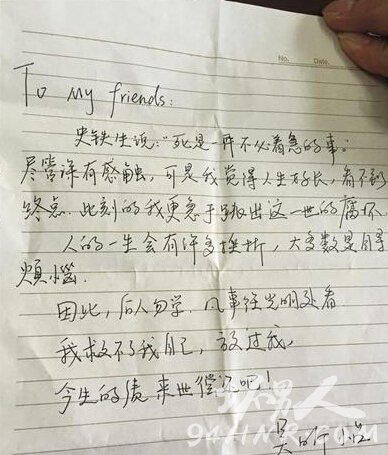 No. Date.
To my friends:
史铁生说:"死是一件不必着急的事。
尽管深有感触,可是我觉得人生好长,看不到
终点.此刻的我更急于跳出这一世的腐坏
人的一生会有许多挫折,大多数是自寻
煩惱.
因此,后人勿学.凡事往光明处看.
我救不了我自己,放过我,
今生的债来世偿还吧!
吴
男人